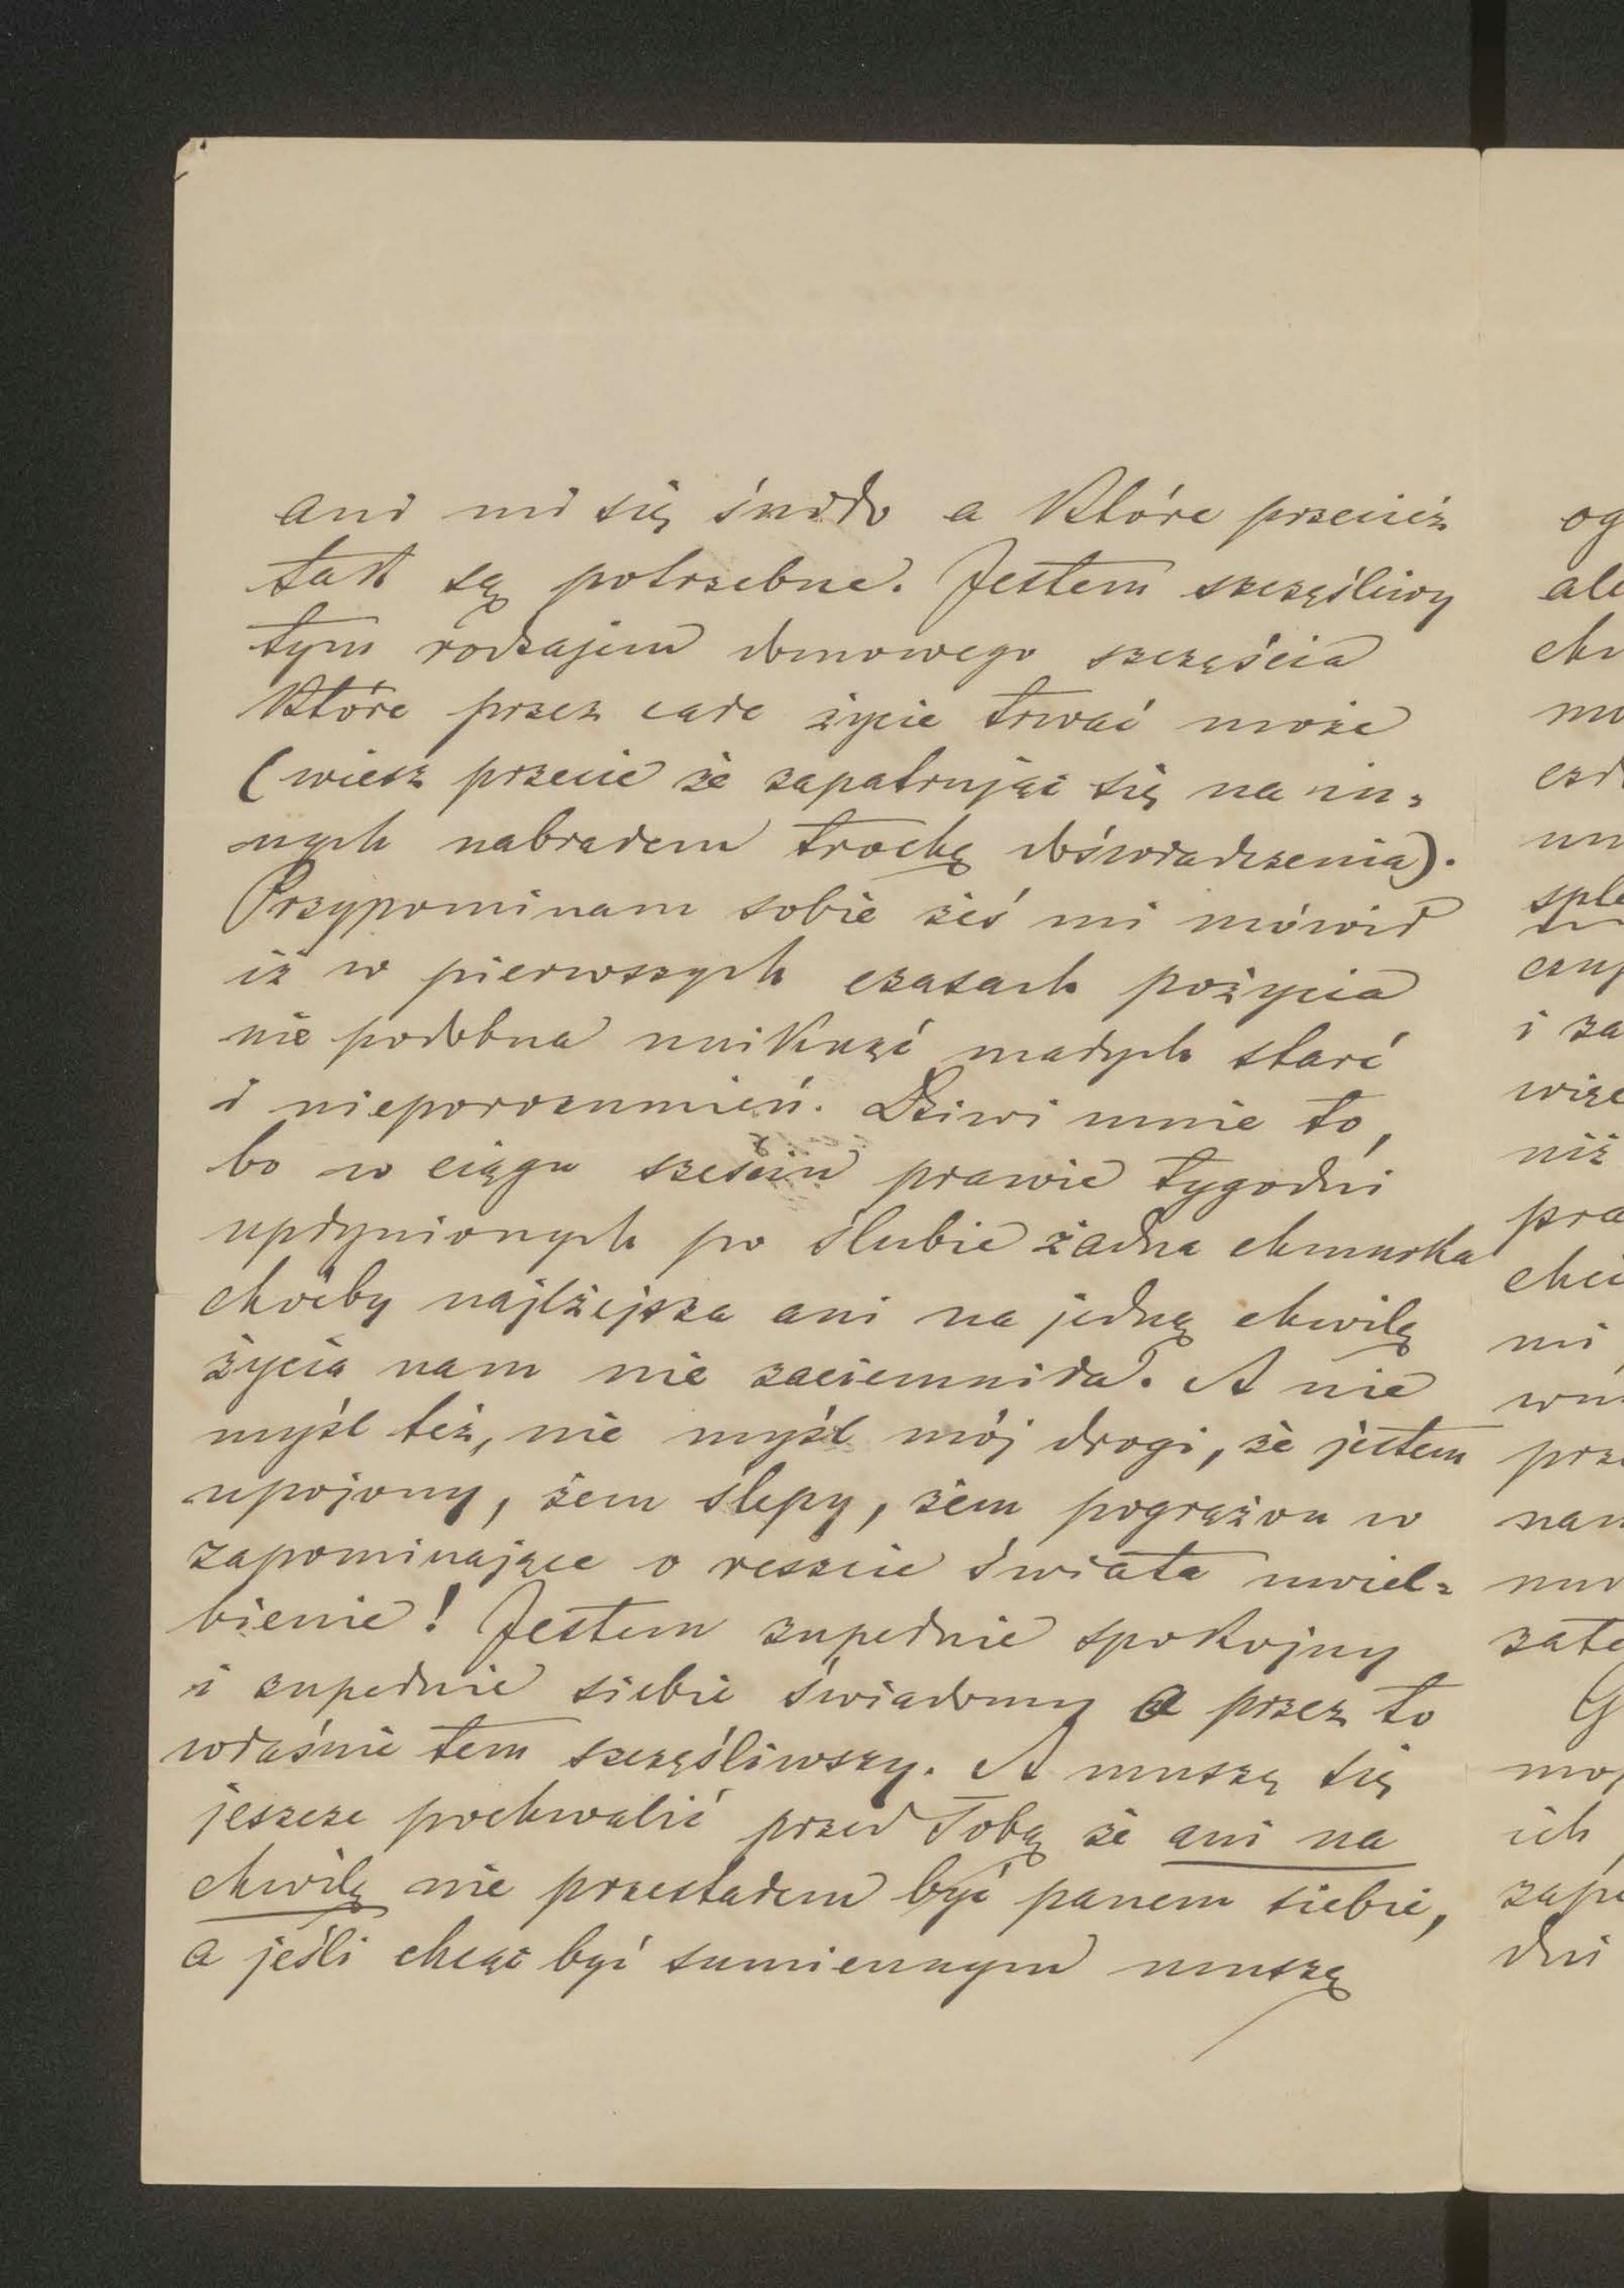 ani mi się śniło a które przecież
tak są potrzebne. Jestem szczęśliwy
tym rodzajem domowego szczęścia
które przez całe życie trwać może
(wiesz przecie że zapatrując się na in-
nych nabrałem trochę doświadczenia).
Przypominam sobie żeś mi mówił
iż w pierwszych czasach pożycia
nie podobna uniknąć małych starć
i nieporozumień. Dziwi mnie to,
bo w ciągu sześciu prawie tygodni
upłynionych po ślubie żadna chmurka
choćby najlżejsza ani na jedną chwilę
życia nam nie zaciemniła. A nie
myśl też, nie myśl mój drogi, że jestem
upojony, żem ślepy, żem pogrążon w
zapominające o reszcie świata uwiel-
bienie! Jestem zupełnie spokojny
i zupełnie siebie świadomy a przez to
właśnie tem szczęśliwszy. A muszę się
jeszcze pochwalić przed Tobą że ani na
chwilę nie przestałem być panem siebie,
a jeśli chcąc być sumiennym muszę
og
ale
ch
mo
czł
un
sple
czu
i za
więc
niż
pra
chci
mi
wn
prze
nam
mo
zate
G
moj
ich
zape
dni